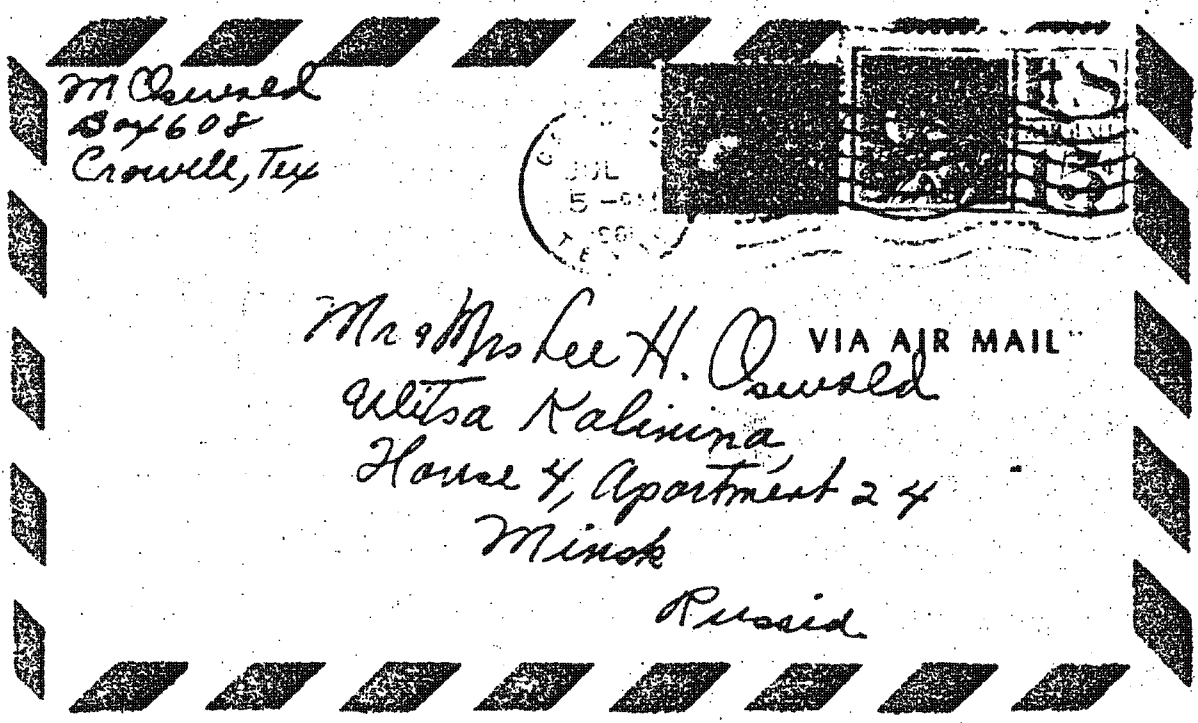 M Oswald
Box 608
Crowell, Tex
JUL
5 - PM
TEX
U.S.
Mr & Mrs Lee H. Oswald
VIA AIR MAIL
Ulitsa Kalinina,
House 4, Apartment 24
Minsk
Russia